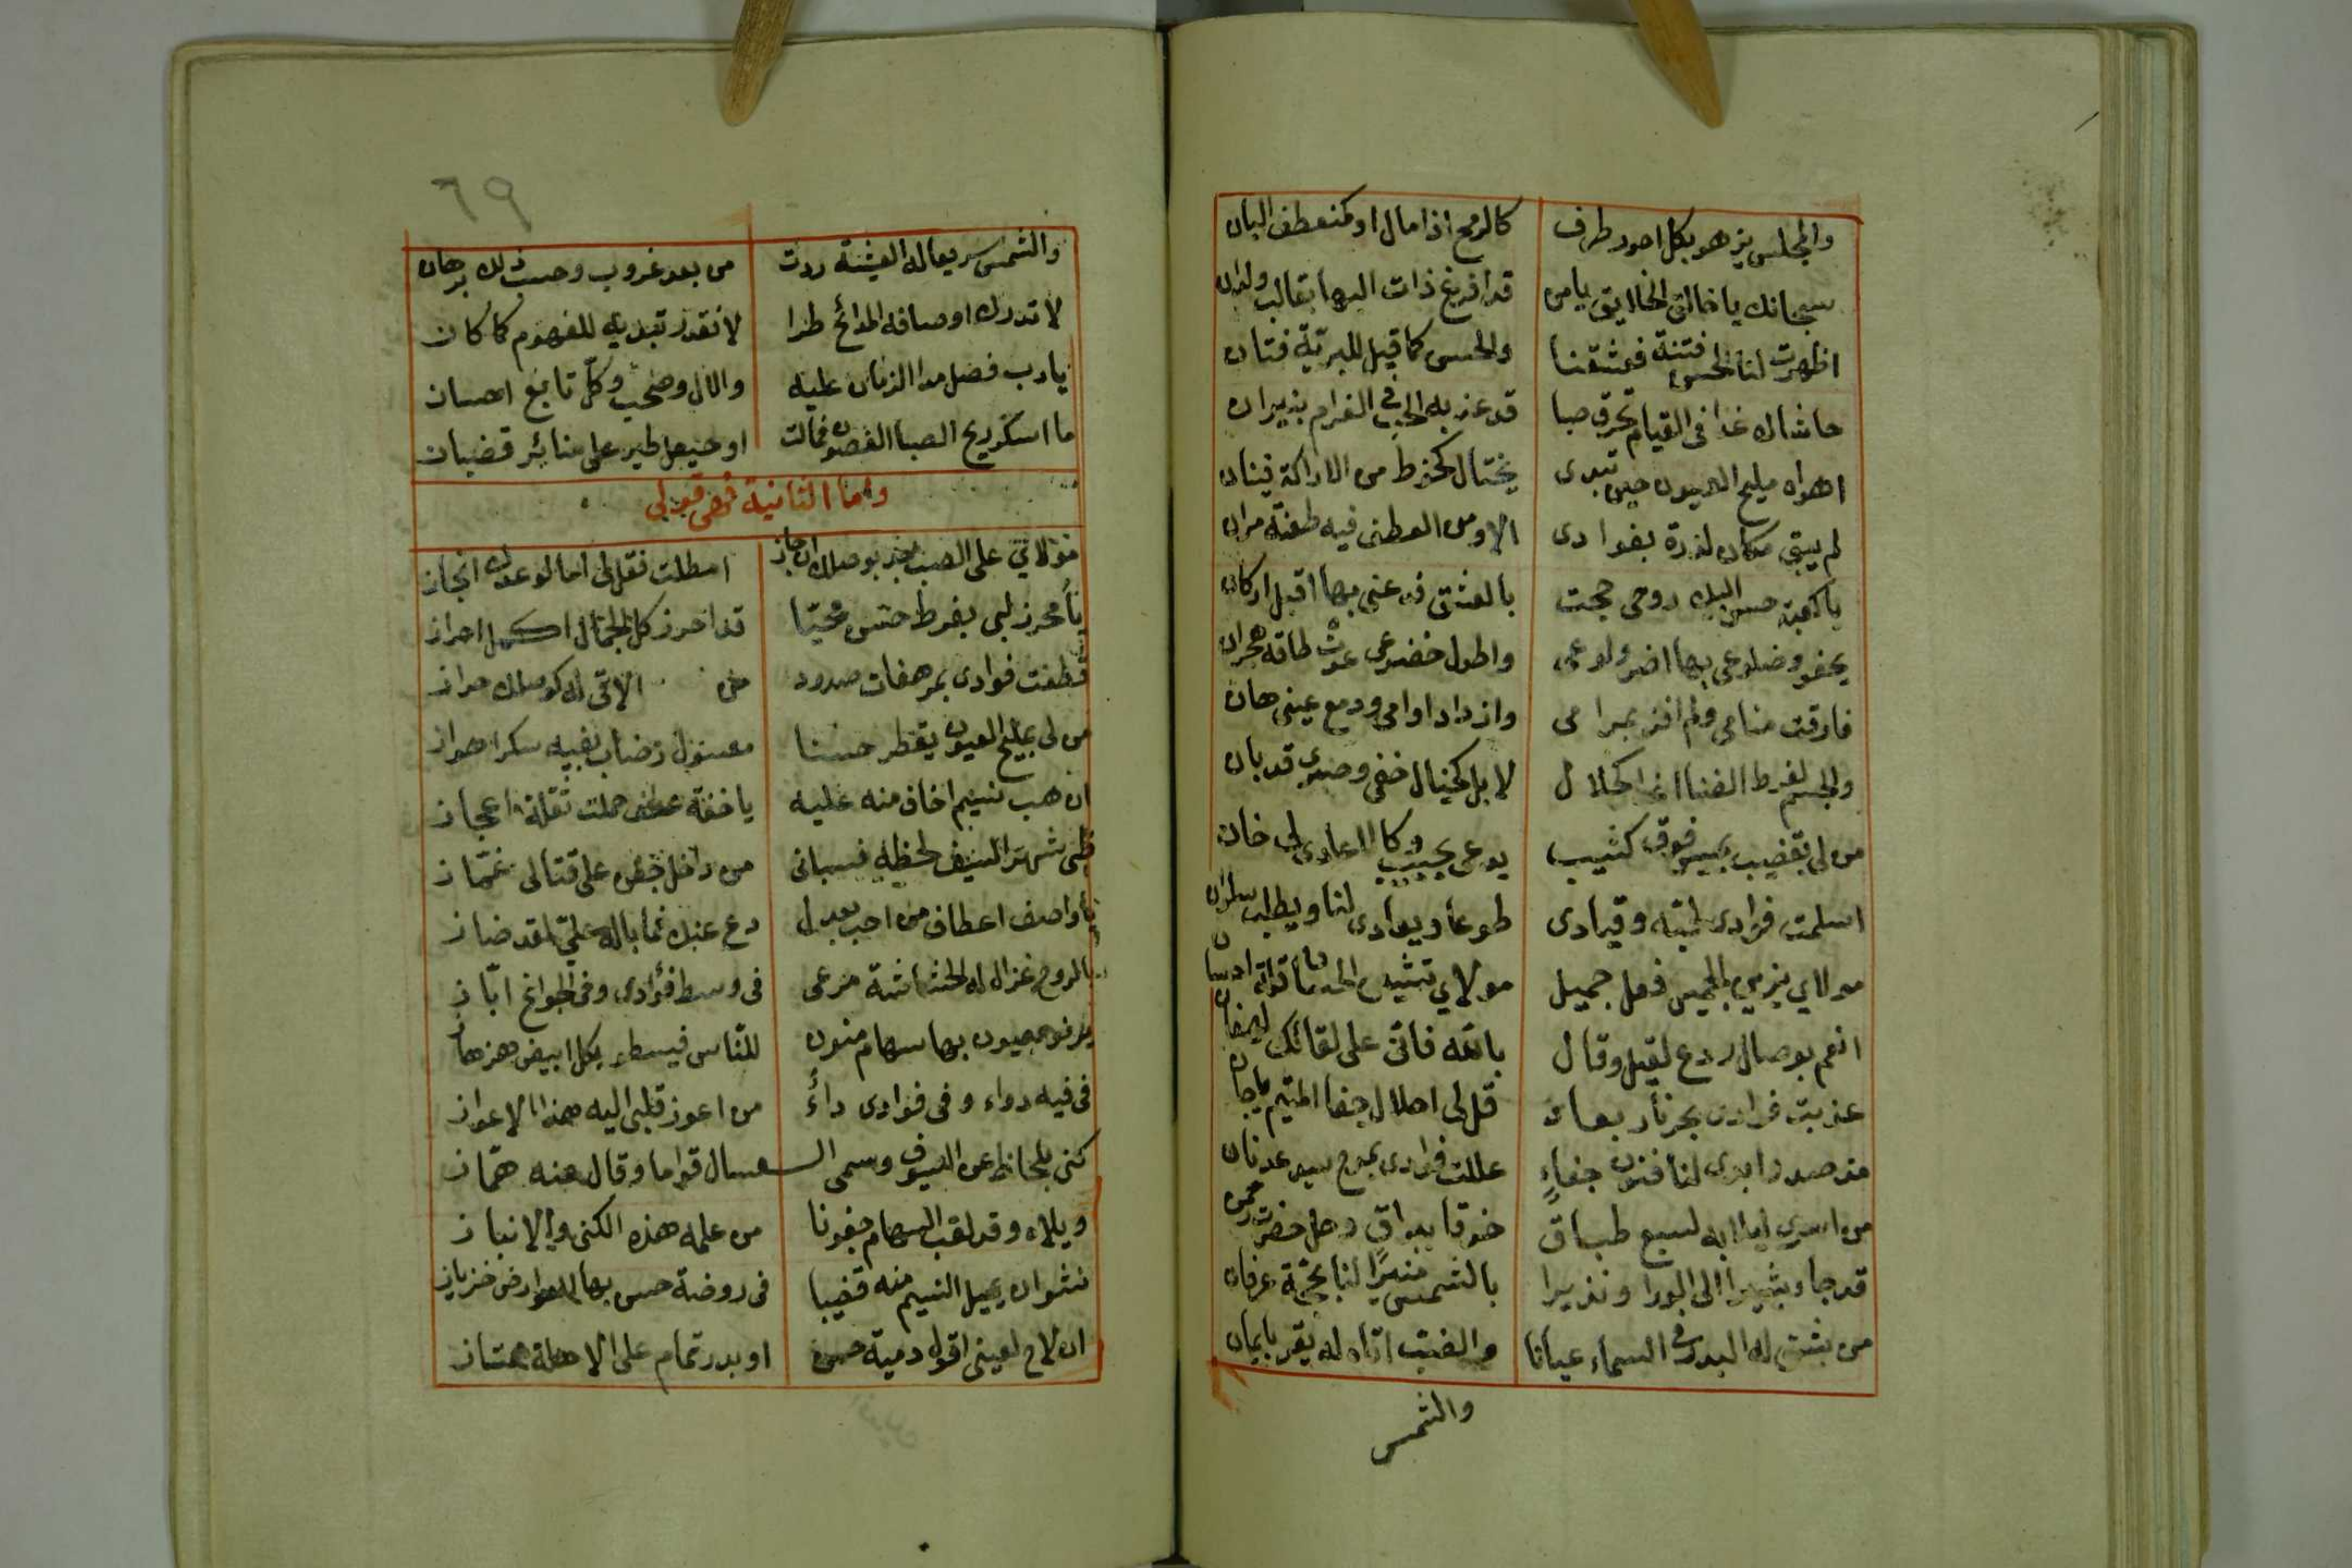 والمجلس يزهو بكل احور طرف كالرمح اذا مال او كمنعطف البان
سبحانك يا خالق الخلايق يا من قد افرغ ذات البها بقالب ولدان
اظهرت لنا الحسن فتنة فعشقنا والحسن كما قيل للبرية فتان
حاشاك غدا في القيام تحرق صبا قد عذبه الحب في الغرام بنيران
اهواه مليح العيون حين تبدى يختال كخوط من الاراكة فينان
لم يبق مكان لذرة بفوادى الا ومن العطف فيه طعنة مران
يا كعبة حسن اليك روحى حجت بالعشق فدعني بها اقبل اركان
واطول خضوعى طاقه هجران
فارقت منامى ولم افز بمرامى وازداد اوامى ودمع عينى هان
والجسم لفرط الضنا لا بل كخيال خفى وصبرى قد بان
من لى بقضيب يميس فوق كثيب يدعى بحبيب وكا لي خان
اسلمت فوادى لحبه وقيادى طوعا ويعادى لنا ويطلب سلوان
مولاي يزين الجميل فعل جميل مولاي تشين
انعم بوصال ودع لقيل وقال بالله فانى على لقائك لهفان
عذبت فوادى بحر نار بعاد قل لى احلال جفا المتيم يا جان
مذ صد وابدى لنا فنون جفاءٍ عللت فوادى بمدح سيد عدنان
من اسرى به لسبع طباق خوقا ببراق وحل حضرت رحمن
قد جاء بشيرا الى الورا ونذيرا بالشمس منيرًا لنا بحجة عرفان
من شق له البدر في السماء عيانا والضب اتاه له يقر بايمان
والشمس
٦٩
والشمس سريعا له العشية ردت من بعد غروب وحسب ذلك برهان
لا تدرك اوصافه المدائح طرا لا تقدر تبديه للفهوم كما كان
يا رب فصل مدا الزمان عليه والال وصحب وكل تابع احسان
ما اسكر ريح الصبا الغصون فمالت او حيعل طير على منائر قضبان
واما الثانية فهى قولى
مولاي على الصب بوصلك ان جاز امطلت فقل لى اما لوعدك انجاز
يا محرز لبى بفرط حسن محيا قد احرز كل الجمال اكمل احراز
قطعت فوادى بمرهفات صدود
من لى بمليح العيون يقطر حسنا معسول رضاب بفيه سكر اهواز
ان هب نسيم اخاف منه عليه يا خفة عطف حملت ثقلة اعجاز
ظبى شهر السيف لحظه فسبانى من داخل جفن على قتالى غماز
يا واصف اعطاف من احب بعدل دع عنك فما بالك على لقد ضاز
بالروح غزال له الحشاشة مرعى فى وسط فؤادى وفى الجوانح اباز
يرنو بعيون بها سهام منون للناس فيسطو بكل ابيض هزهاز
فى فيه دواء وفى فوادى داءُ من اعوز قلبى اليه هذا الاعواز
كنى بلحاظ عن السيوف وسمى العسال قواما وقال عنه همّاز
ويلاه وقد لقب السهام جفونا من علمه هذه الكنى والانباز
نشوان يميل النسيم منه قضيبا فى روضة حسن بها العوارض خزباز
ان لاح لعينى اقول دمية حسن او بدر تمام على الاهلة ممتاز